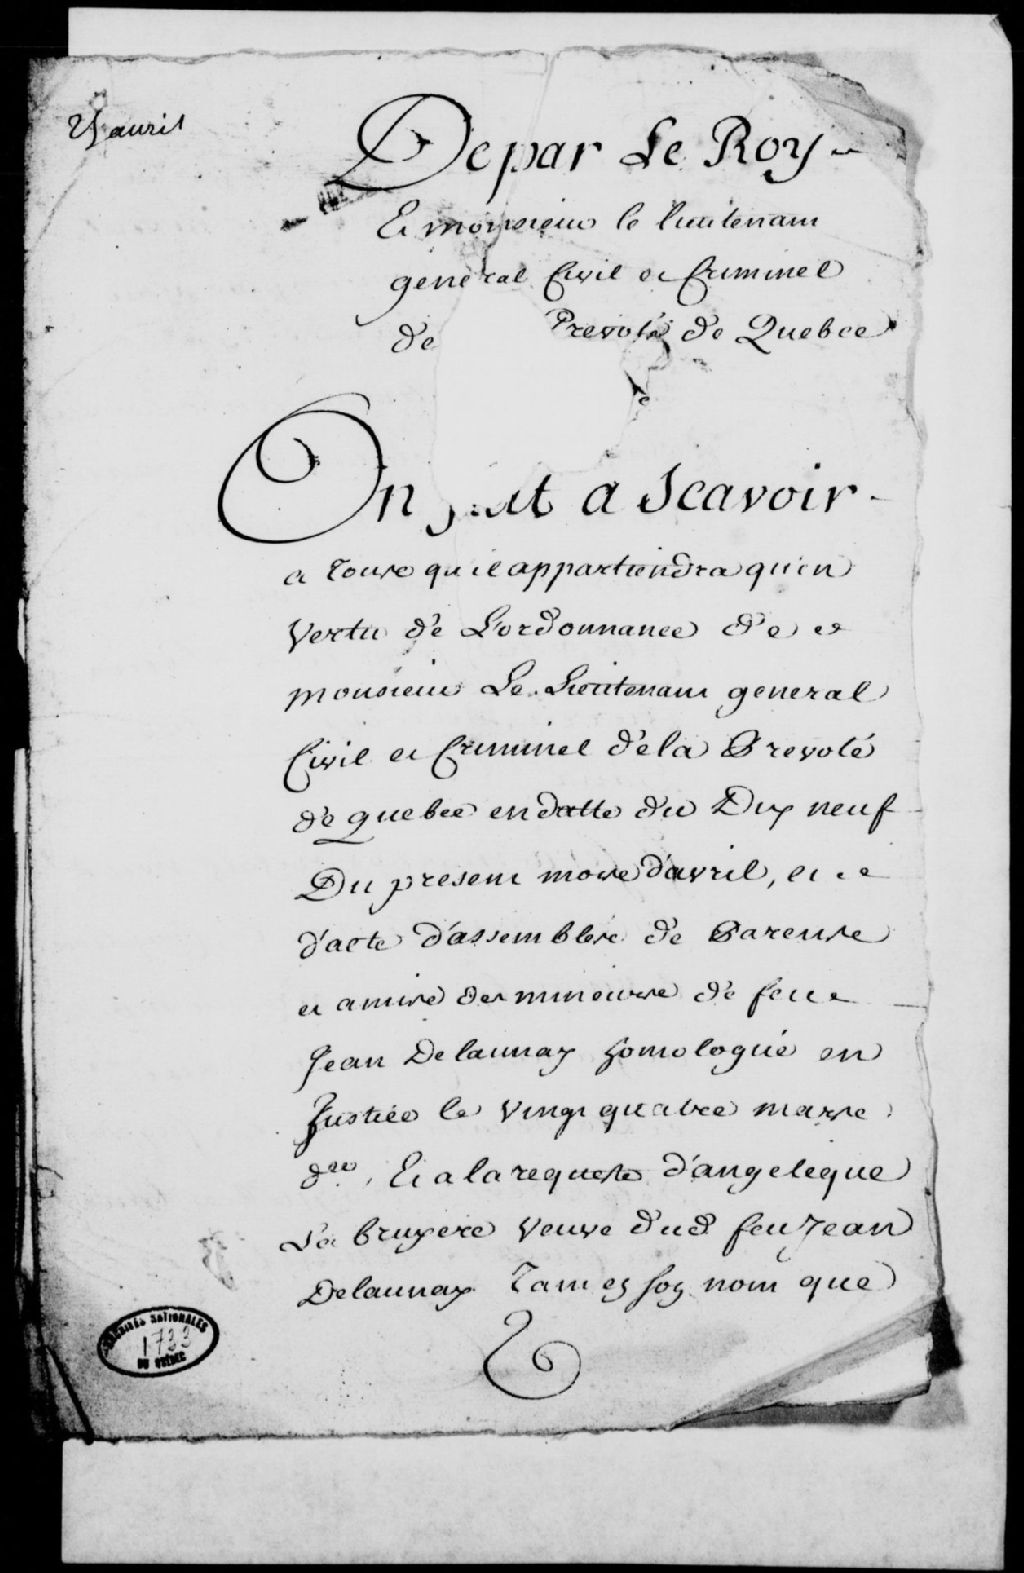 25 auril
De par Le Roy
Et monsieur le lieutenant
general Civil et Criminel
de Prevoté de Quebec
On fait a Scavoir
a tous quil appartiendra quen
Vertu de L'ordonnance de
monsieur Le Lieutenant general
Civil et Criminel de la Prevoté
de quebec en datte du Dix neuf
Du present mois d'avril, et
d'acte d'assemblée de Parens
et amis des mineurs de feu
Jean Delaunay homologué en
Justice le vingt quatre mars
der, Et a la requeste d'angeleque
La bruyere veuve dud feu Jean
Delaunay Tant en son nom que
ARCHIVES NATIONALES
1733
DU QUÉBEC